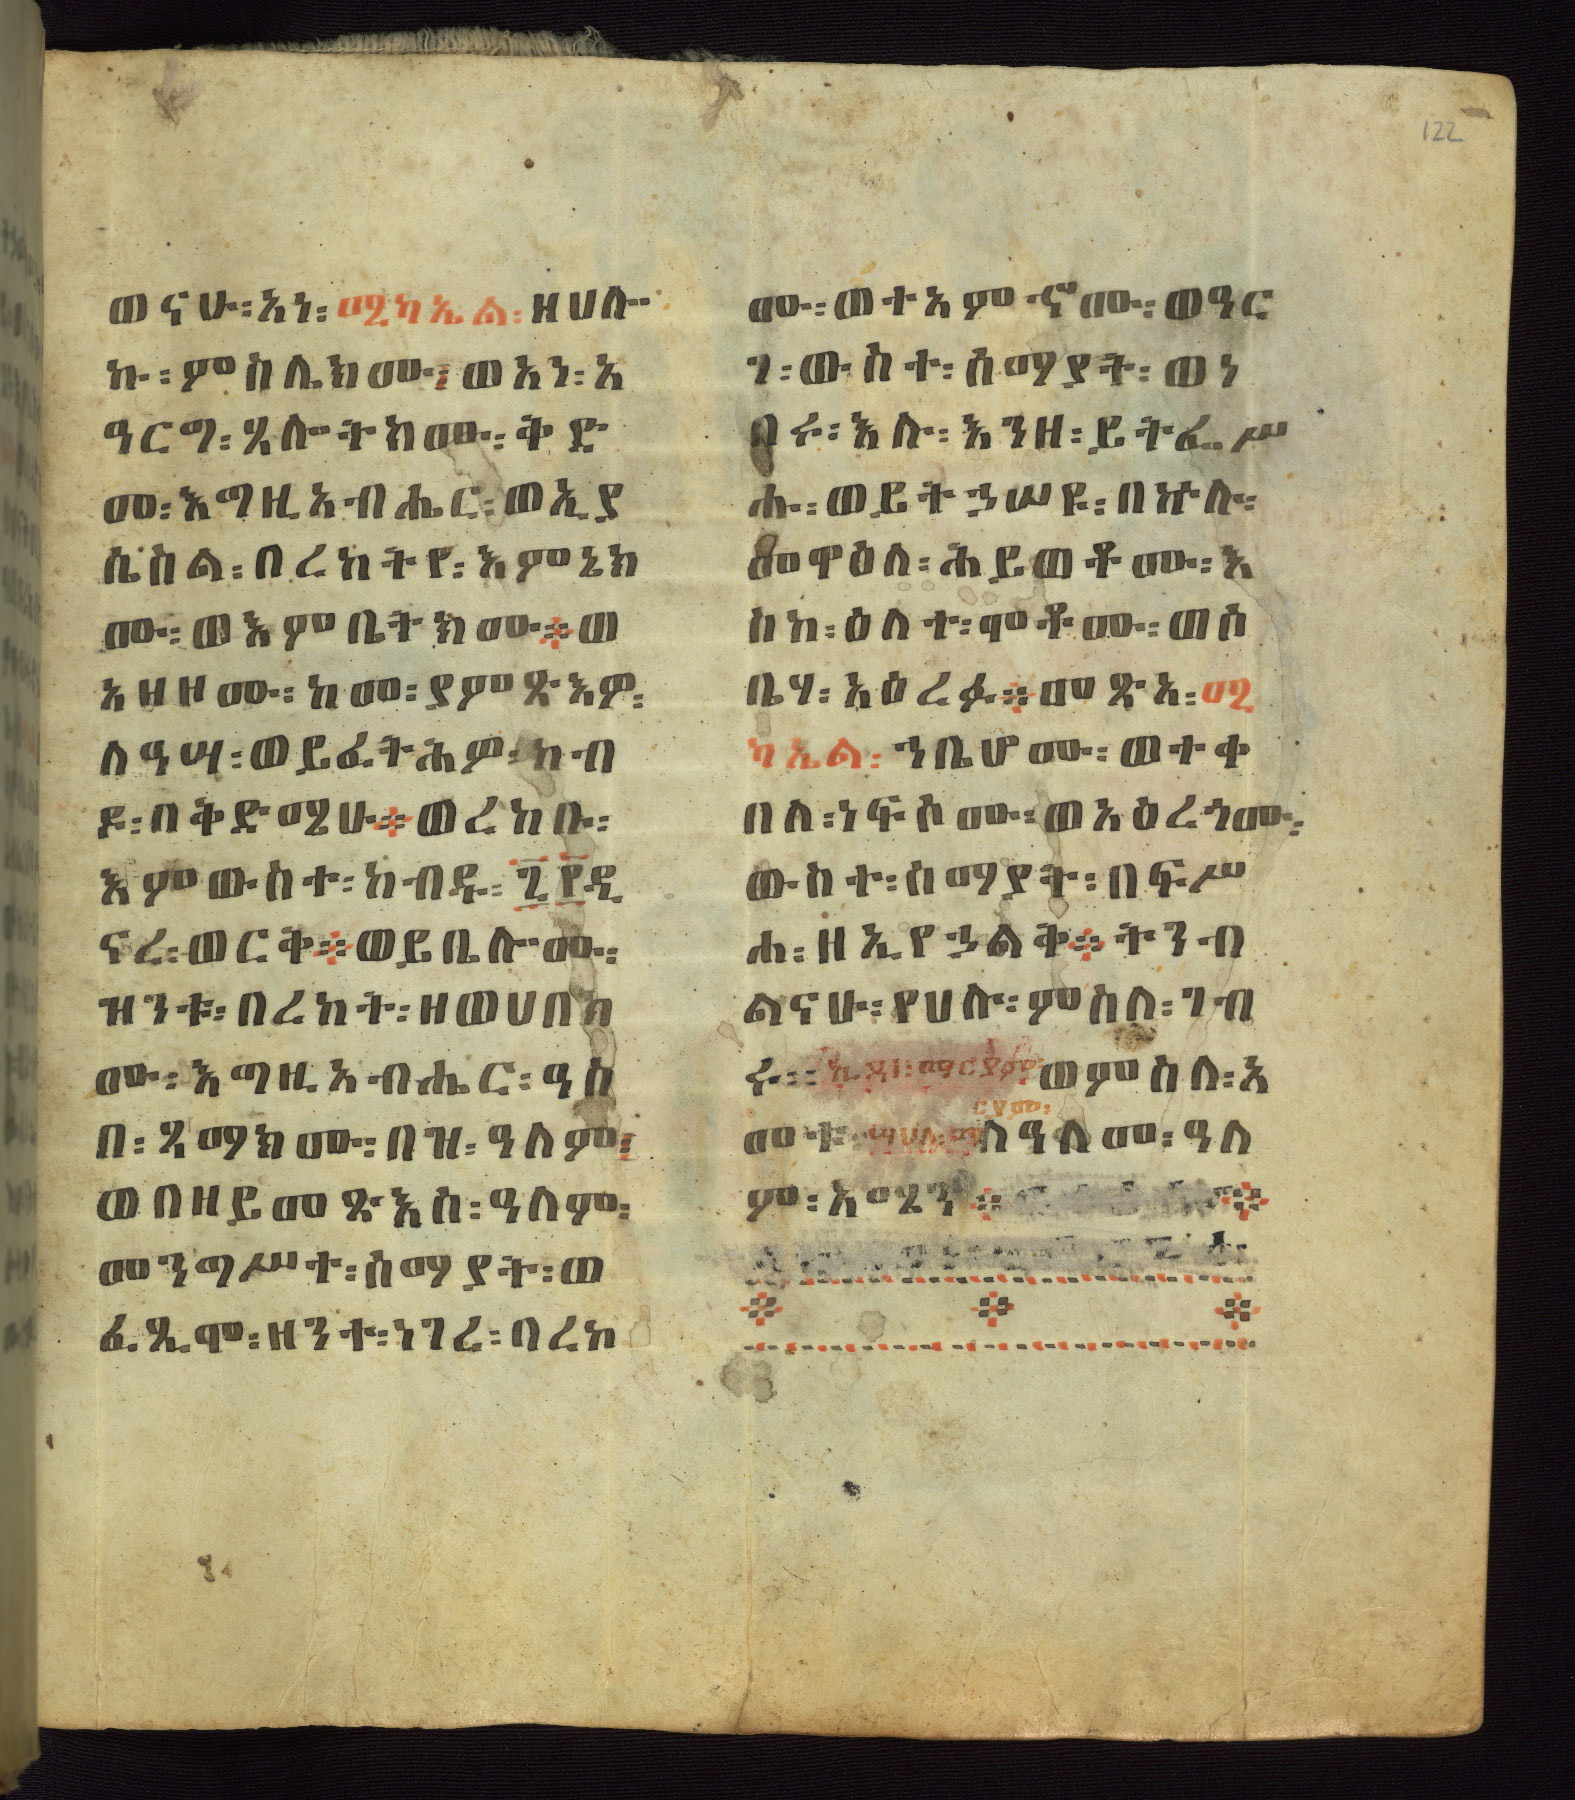 122
ወናሁ፡አነ፡ሚካኤል፡ዘሀሎ
ኩ፡ምስሌክሙ፡ወአነ፡አ
ዓርግ፡ጸሎትክሙ፡ቅድ
መ፡እግዚአብሔር፡ወኢያ
ሴስል፡በረከትየ፡እምኔክ
ሙ፡ወእምቤትክሙ፨ወ
አዘዞሙ፡ከመ፡ያምጽእዎ፡
ለዓሣ፡ወይፈትሕዎ፡ከብ
ዶ፡በቅድሜሁ፨ወረከቡ፡
እምውስተ፡ከብዱ፡፫፻ዲ
ናረ፡ወርቅ፨ወይቤሎሙ፡
ዝንቱ፡በረከት፡ዘወሀበክ
ሙ፡እግዚአብሔር፡ዓስ
በ፡ጻማክሙ፡በዝ፡ዓለም፡
ወበዘይመጽእሰ፡ዓለም፡
መንግሥተ፡ሰማያት፡ወ
ፈጺሞ፡ዘንተ፡ነገረ፡ባረከ
ሙ፡ወተአምኖሙ፡ወዓር
ገ፡ውስተ፡ሰማያት፡ወነ
በሩ፡እሉ፡እንዘ፡ይትፌሥ
ሑ፡ወይትኃሠዩ፡በኵሉ፡
መዋዕለ፡ሕይወቶሙ፡እ
ስከ፡ዕለተ፡ሞቶሙ፡ወሶ
ቤሃ፡አዕረፉ፨መጽአ፡ሚ
ካኤል፡ኀቤሆሙ፡ወተቀ
በለ፡ነፍሶሙ፡ወአዕረጎሙ፡
ውስተ፡ሰማያት፡በፍሥ
ሐ፡ዘኢየኃልቅ፨ትንብ
ልናሁ፡የሀሉ፡ምስለ፡ገብ
ሩ፡ ወምስለ፡አ
መቱ፡ ለዓለመ፡ዓለ
ም፡አሜን፨